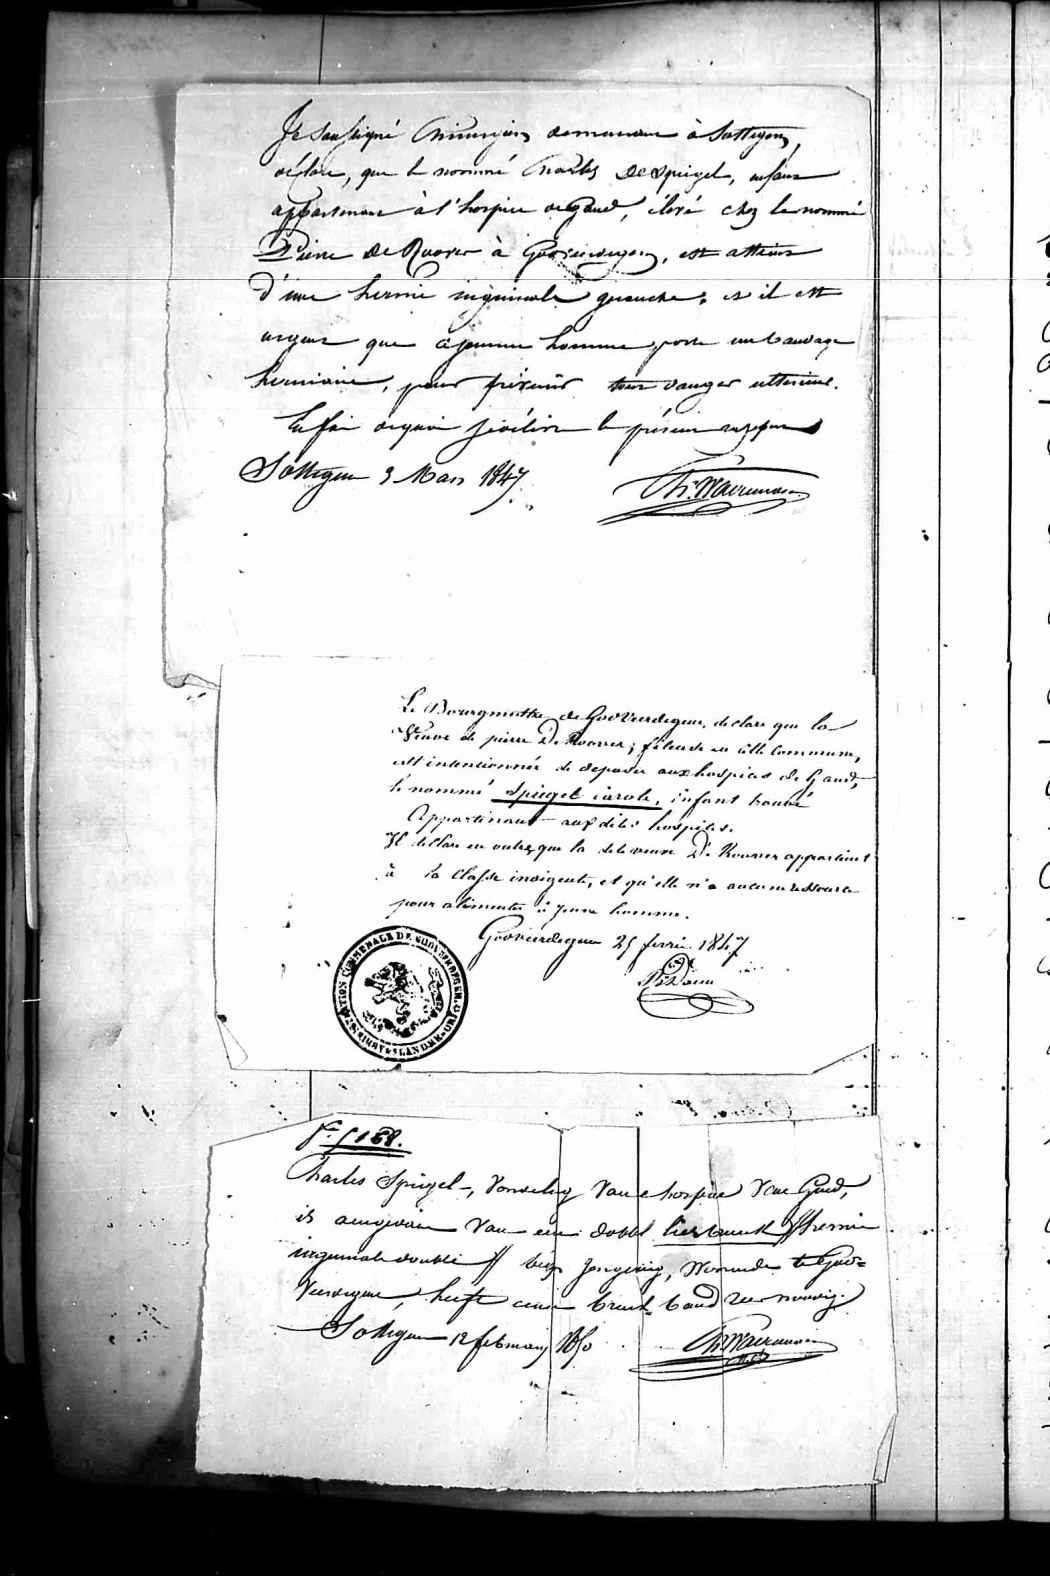 Je soussigné Chirurgien demeurant à Sottegem,
déclare, que le nommé Charles De Spiegel, enfant
appartenant à l'hospice de Gand, élevé chez le nommé
Pierre De Roover à Goeferdingen, est atteint
d'une hernie inguinale gauche, et il est
urgent que ce jeune homme porte un bandage
herniaire, pour prévenir tout danger ultérieur.
En foi de quoi je délivre le présent
Sottegem 3 Mars 1847
Le Bourgmestre de Godveerdegem, declare que la
Veuve de pierre De Roover, fileuse en cette commune,
est intentionnée de deposer aux hospices de Gand,
le nommé Spiegel carole, enfant trouvé
Appartenant aux dites hospices.
Il déclare en outre que la dite veuve De Roover appartient
à la Classe indigente, et qu'elle n'a aucune ressource
pour alimenter ce jeune homme.
Godveerdegem 25 fevrier 1847
Charles Spiegel, Vondeling Van e hospice Van Gend,
is aengedaen Van een dobbel liesbreuk (hernie
inguinale double) bey Jongeling, Woonende te God=
Veerdegem, heeft eenen breuk-band zeer noodig.
Sottegem 12 february 1850